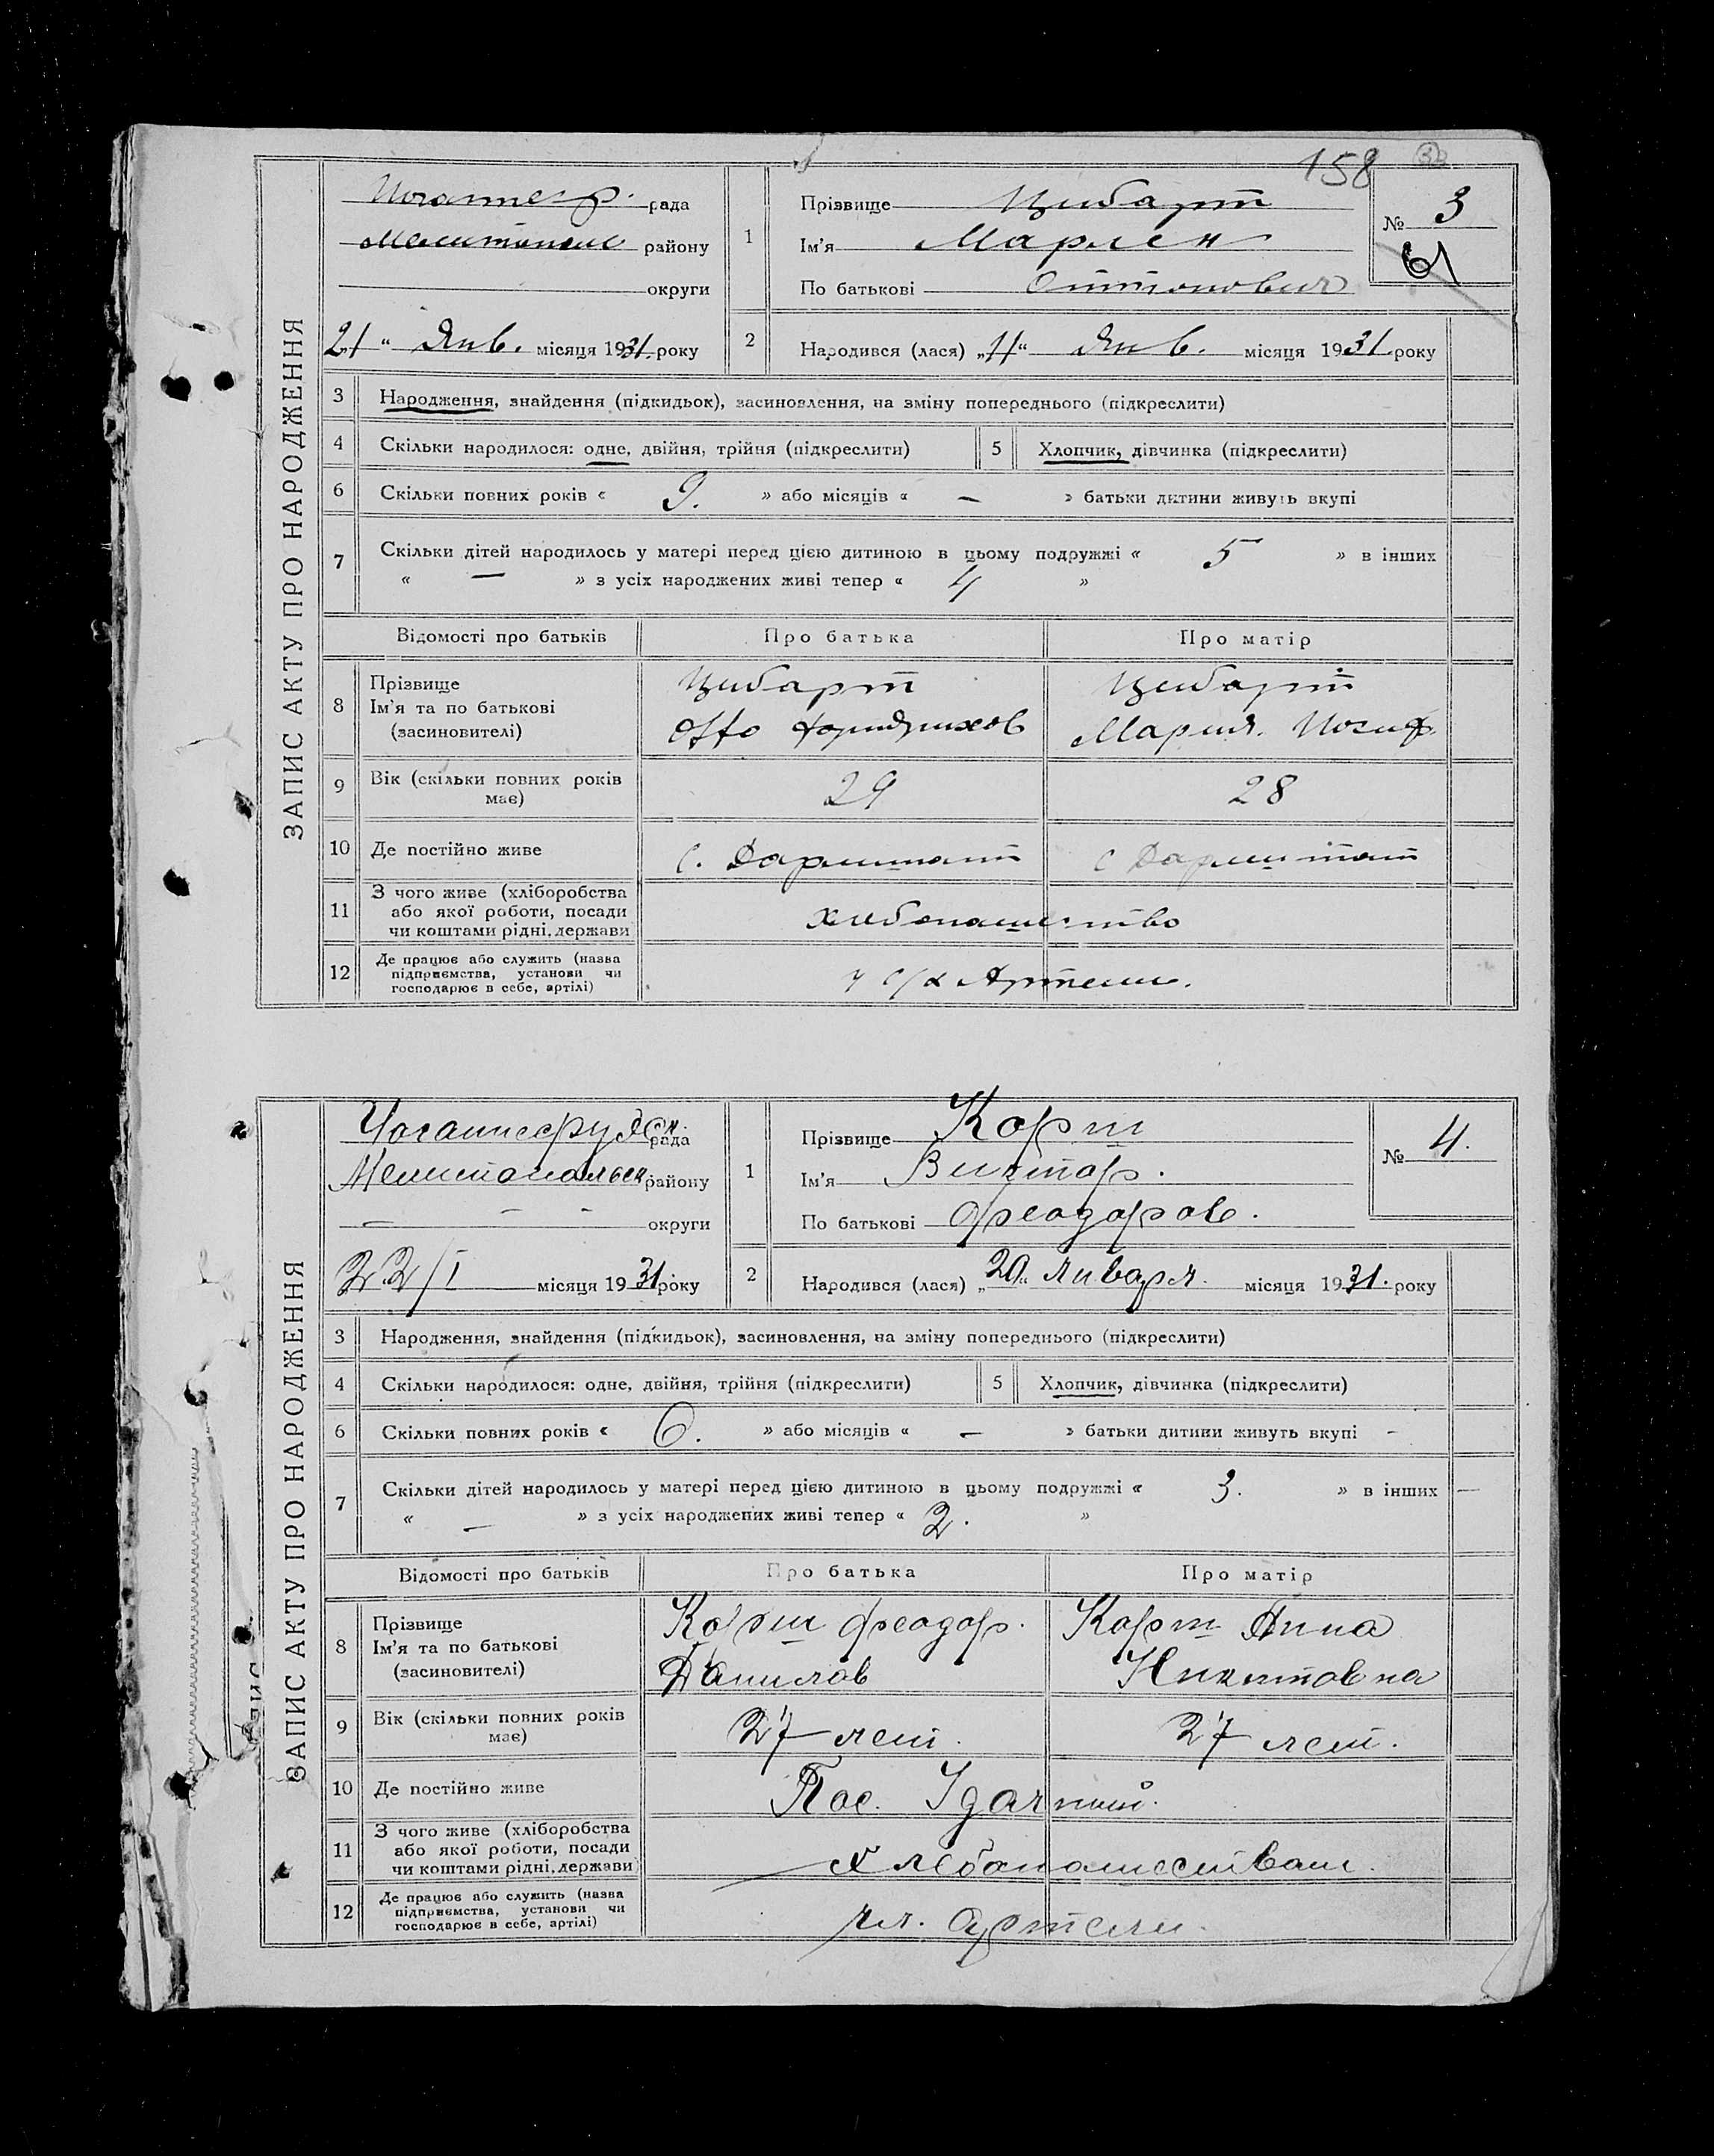 158
ЗАПИС АКТУ ПРО НАРОДЖЕННЯ
рада
Мелитопол району
округи
21 " Янв. місяця 1931 року
1
Прізвище Цибарт
Ім'я Марлен
По батькові Оттонович
№ 3
61
2
Народився (лася) „11“ Янв. місяця 1931 року
3 Народження, знайдення (підкидьок), засиновлення, на зміну попереднього (підкреслити)
4 Скільки народилося: одне, двійня, трійня (підкреслити) 5 Хлопчик, дівчинка (підкреслити)
6 Скільки повних років « 9. » або місяців « — » батьки дитини живуть вкупі
7 Скільки дітей народилось у матері перед цією дитиною в цьому подружжі « 5 » в інших
« — » з усіх народжених живі тепер « 4 »
Відомості про батьків Про батька Про матір
8 Прізвище Ім'я та по батькові (засиновителі)
Цибарт Цибарт
Otto Мария.
9 Вік (скільки повних років має) 29 28
10 Де постійно живе с. Дармштат с Дармштат
11 З чого живе (хліборобства або якої роботи, посади чи коштами рідні, держави хлебопашество
12 Де працює або служить (назва підприємства, установи чи господарює в себе, артілі) с/х Артели.
ЗАПИС АКТУ ПРО НАРОДЖЕННЯ
рада
Мелитопольск району
— – - округи
22/I місяця 1931 року
1
Прізвище Корш
Ім'я Виктор.
По батькові Феодоров.
№ 4.
2
Народився (лася) „20“ Января. місяця 1931. року
3 Народження, знайдення (підкидьок), засиновлення, на зміну попереднього (підкреслити)
4 Скільки народилося: одне, двійня, трійня (підкреслити) 5 Хлопчик, дівчинка (підкреслити)
6 Скільки повних років « 6. » або місяців « — » батьки дитини живуть вкупі -
7 Скільки дітей народилось у матері перед цією дитиною в цьому подружжі « 3. » в інших —
« — » з усіх народжених живі тепер « 2. »
Відомості про батьків Про батька Про матір
8 Прізвище Ім'я та по батькові (засиновителі)
Корш Феодор. Корш Анна
Данилов Никитовна
9 Вік (скільки повних років має) 27 лет. 27 лет.
10 Де постійно живе Пос. Удачный.
11 З чого живе (хліборобства або якої роботи, посади чи коштами рідні, держави
12 Де працює або служить (назва підприємства, установи чи господарює в себе, артілі) чл. артели.